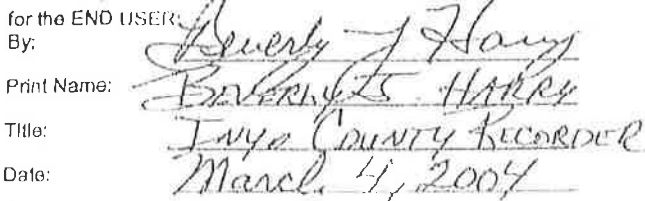 for the END USER:
By: Beverly J Harry
Print Name: BEVERLY J. HARRY
Title: INYO COUNTY RECORDER
Date: March 4, 2004